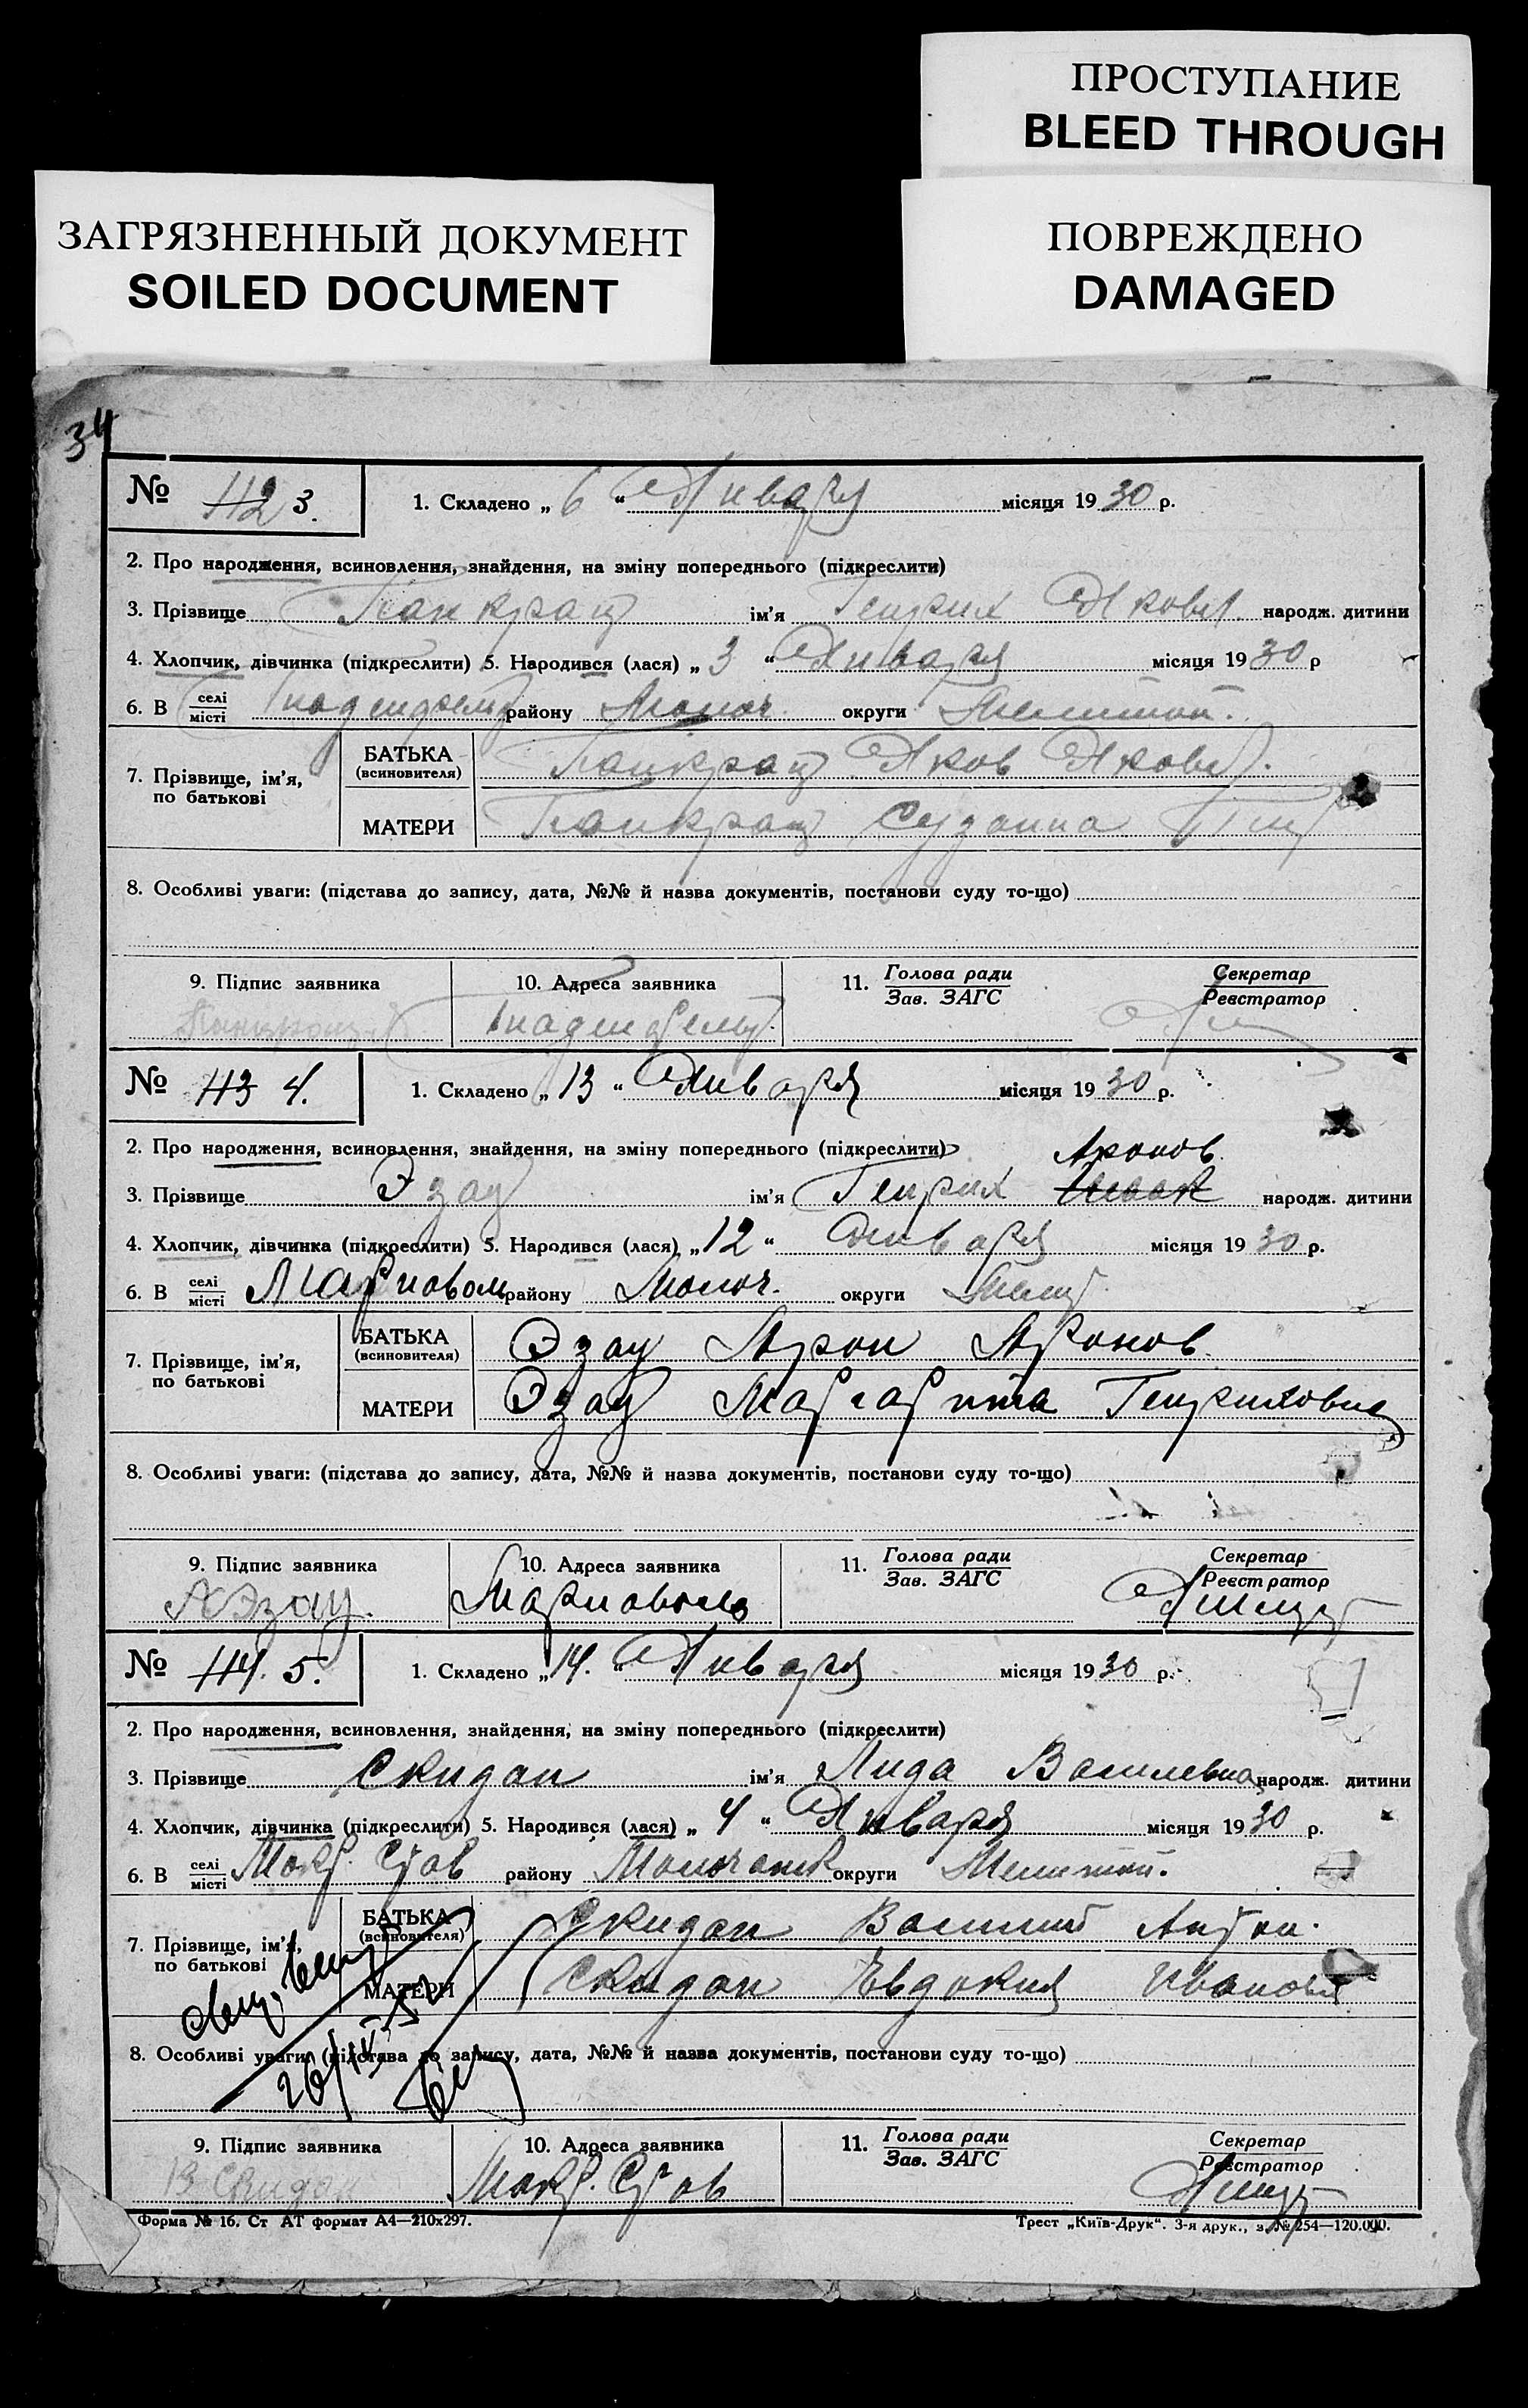 ПРОСТУПАНИЕ
BLEED THROUGH
ЗАГРЯЗНЕННЫЙ ДОКУМЕНТ
SOILED DOCUMENT
ПОВРЕЖДЕНО
DAMAGED
34
№ 112 3. 1. Складено „ 6 “ Января місяця 19 30 р.
2. Про народження, всиновлення, знайдення, на зміну попереднього (підкреслити)
3. Прізвище Панкрац ім'я Генрих Яковл. народж. дитини
4. Хлопчик, дівчинка (підкреслити) 5. Народився (лася) „ 3 “ Января місяця 19 30 р
6. В селі місті району Молоч. округи Мелитоп.
7. Прізвище, ім'я, по батькові
БАТЬКА (всиновителя) Панкрац Яков Яковл.
МАТЕРИ Панкрац Сузанна
8. Особливі уваги: (підстава до запису, дата, №№ й назва документів, постанови суду то-що)
9. Підпис заявника 10. Адреса заявника 11. Голова ради Зав. ЗАГС Секретар Реєстратор
№ 113 4. 1. Складено „ 13 “ Января місяця 19 30 р.
2. Про народження, всиновлення, знайдення, на зміну попереднього (підкреслити)
Аронов.
3. Прізвище Эзау ім'я Генрих народж. дитини
4. Хлопчик, дівчинка (підкреслити) 5. Народився (лася) „ 12 “ Января місяця 19 30 р.
6. В селі місті району Молоч. округи Мелит.
7. Прізвище, ім'я, по батькові
БАТЬКА (всиновителя) Эзау Арон Аронов.
МАТЕРИ Эзау Маргарита Генриховна
8. Особливі уваги: (підстава до запису, дата, №№ й назва документів, постанови суду то-що)
9. Підпис заявника 10. Адреса заявника 11. Голова ради Зав. ЗАГС Секретар Реєстратор
А Эзау.
№ 114. 5. 1. Складено „ 14. “ Января місяця 19 30 р.
2. Про народження, всиновлення, знайдення, на зміну попереднього (підкреслити)
3. Прізвище Скидан ім'я Лида Василевна народж. дитини
4. Хлопчик, дівчинка (підкреслити) 5. Народився (лася) „ 4 “ Января місяця 19 30 р.
6. В селі місті району Молочанск округи Мелитоп.
7. Прізвище, ім'я, по батькові
БАТЬКА (всиновителя) Скидан Василий Антон.
МАТЕРИ Скидан Евдокия Иванов
8. Особливі уваги: (підстава до запису, дата, №№ й назва документів, постанови суду то-що)
9. Підпис заявника 10. Адреса заявника 11. Голова ради Зав. ЗАГС Секретар Реєстратор
В Скидан
Форма № 16. Ст АТ формат А4—210х297.
Трест „Київ-Друк“. 3-я друк., з. № 254—120.000.